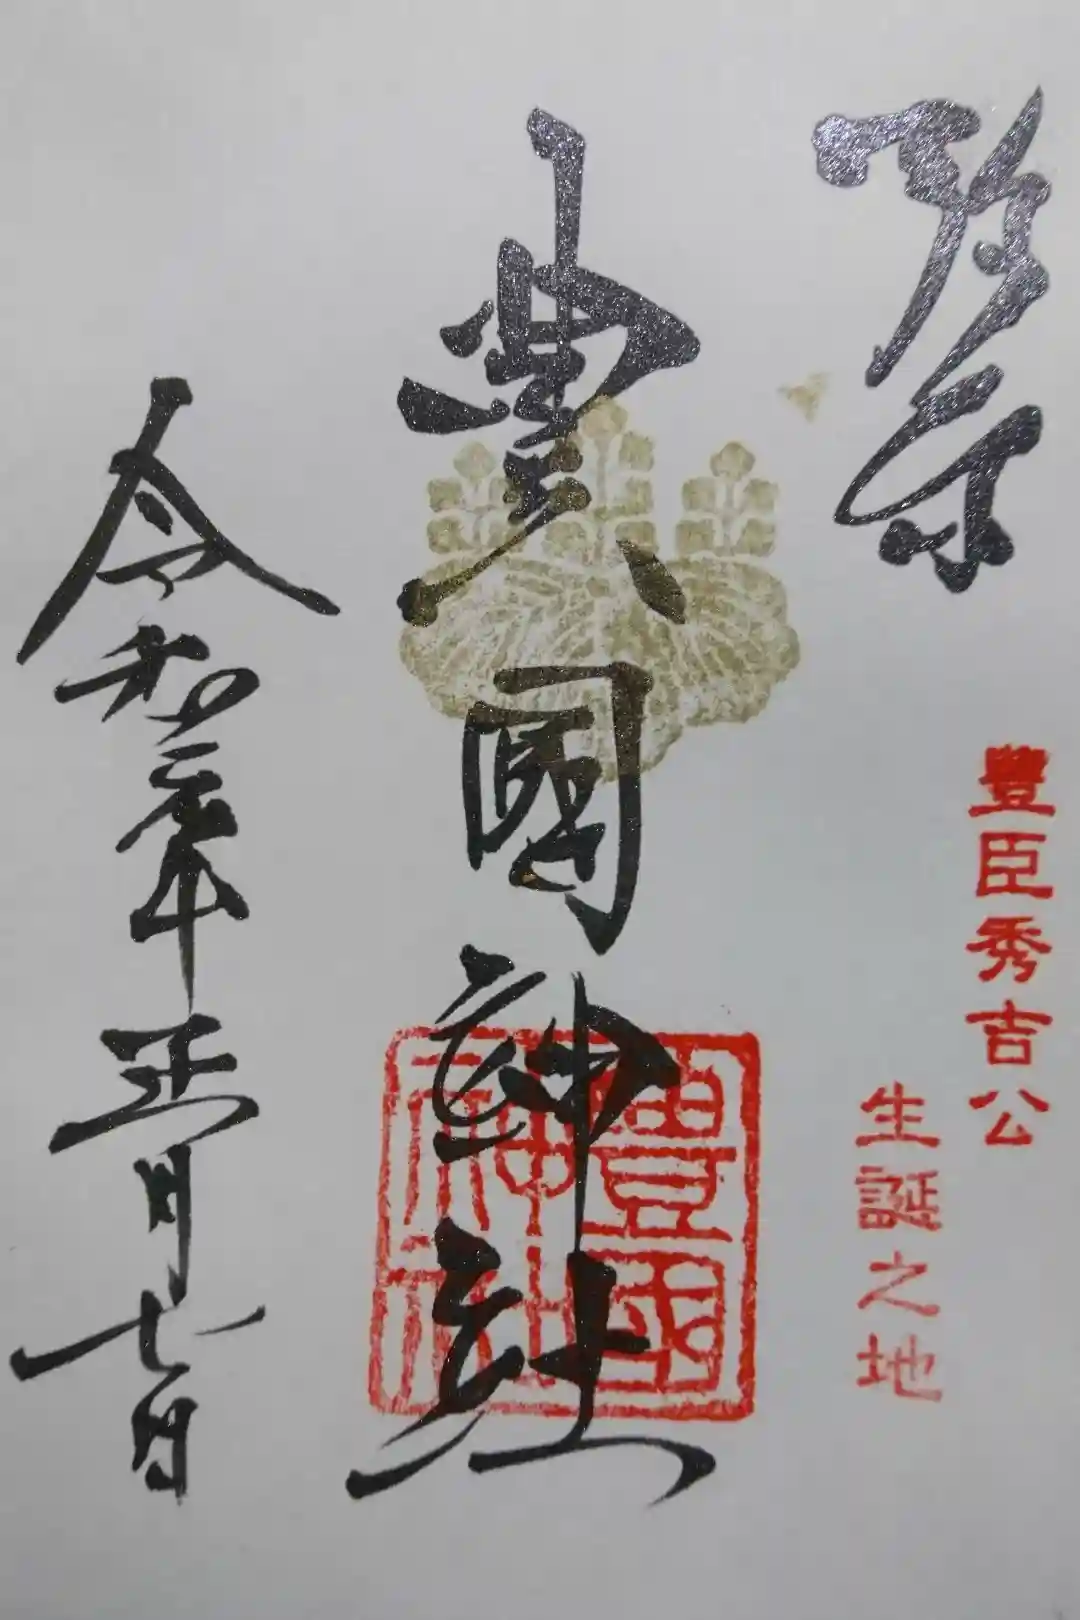 豊臣秀吉公
生誕之地
豊國神社
豊國
神社
令和 年 月七日